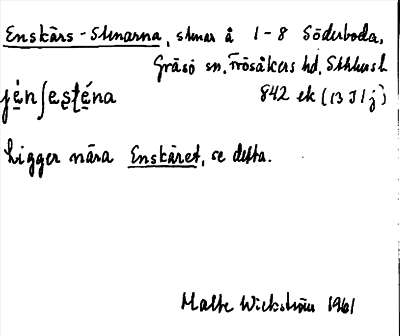 Enskärs-Stenarna, stenar å 1-8 Söderboda,
Gräsö sn, Frösåkers hd, Sthlms l.
jénʃes̨t̨éna 842 ek (13 I 1 j)
Ligger nära Enskäret, se detta.
Malte Wickström 1961